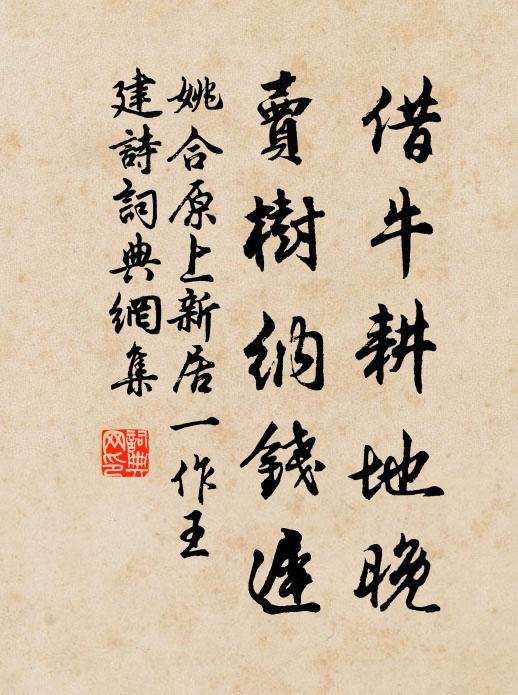 借牛耕地晚
賣樹納錢遲
姚合原上新居一作王
建詩詞典網集
詞典
网印